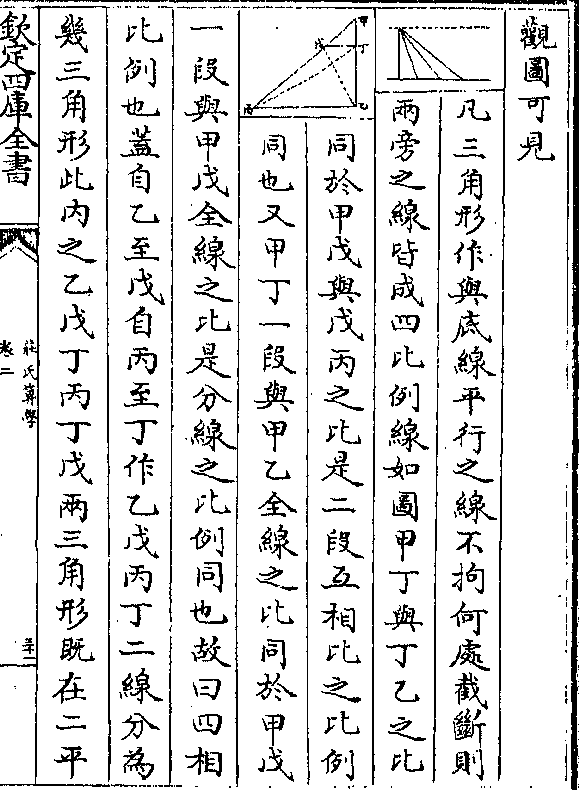 觀圖可見
凡三角形作與底線平行之線不拘何處截斷則
兩旁之線皆成四比例線如圖甲丁與丁乙之比
同於甲戊與戊丙之比是二段互相比之比例
同也又甲丁一段與甲乙全線之比同於甲戊
一段與甲戊全線之比是分線之比例同也故曰四相
比例也蓋自乙至戊自丙至丁作乙戊丙丁二線分為
幾三角形此內之乙戊丁丙丁戊兩三角形既在二平
欽定四庫全書
莊氏算學
卷二
甲
丁
戊
乙
丙